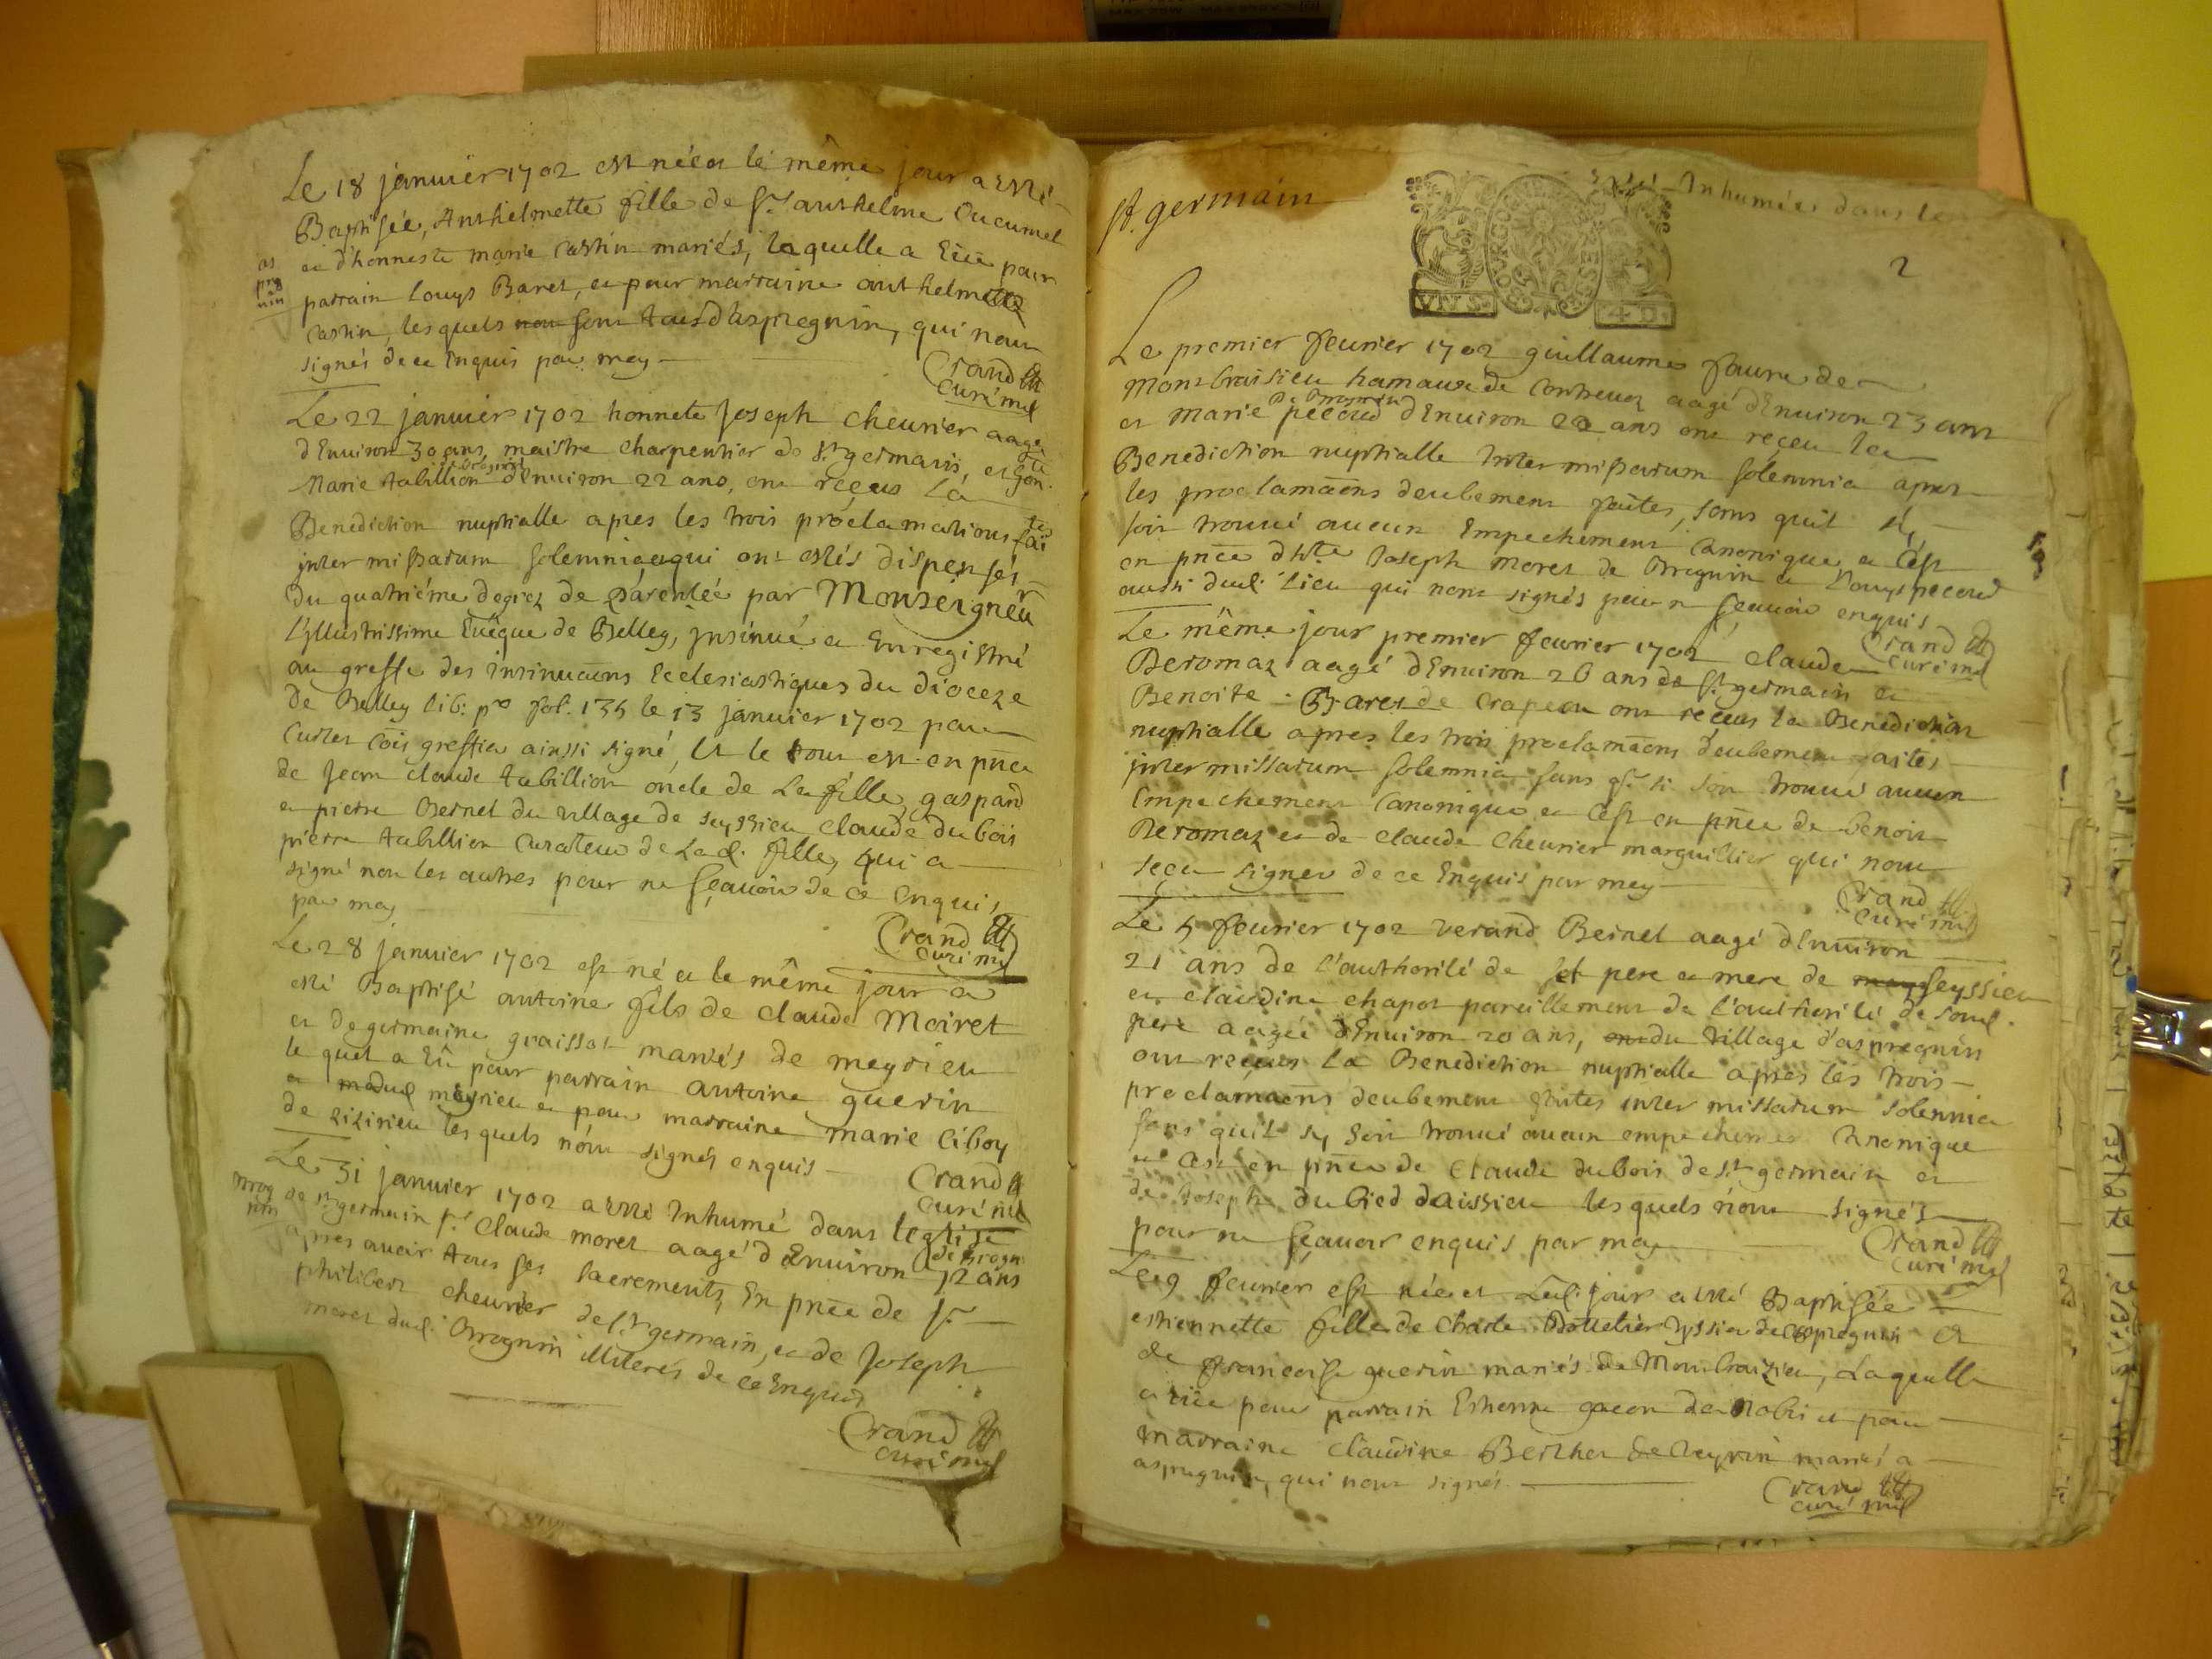 Le 18 januier 1702 est née et le même jour a esté
Baptisée, Anthelmette fille de Sr anthelme Cucumel
et d'honneste marie Castin mariés, laquelle a Eüe pour
as
preg
nin
parrain Louys Baret, et pour marraine anthelmette
Castin, lesquels sont tous d'aspregnin, qui n'ont
signés de ce Enquis par moy
Crand
Curé
Le 22 januier 1702 honnete Joseph cheurier aagé
d'Enuiron 30 ans, maistre charpentier de St germain, et hon.te
Marie tabillion d'Enuiron 22 ans, ont reçeus la
Benediction nuptialle apres les trois proclamations faites
inter missarum solemnia et qui ont estés dispensés
du quatriéme degrez de parentée par Monseigneur
L'jllustrissime Euêque de Belley, jnsinué et Enregistré
au greffe des insinuaons Ecclesiastiques du dioceze
de Belley lib: po fol. 135 le 13 januier 1702 par
Cuttet Cois greffier ainsi signé, Et le tout est en pnce
de Jean claude tabillion oncle de La fille, gaspard
et pierre Bernet du village de seyssieu claude du bois
pierre tabillion Curateur de Lad. fille, qui a
signé non les autres pour ne sçauoir de ce Enquis
par moy
Crand
Curé
Le 28 januier 1702 est né et le même jour a
esté Baptisé antoine fils de claude Moiret
et de germaine graissot mariés de meyrieu
le quel a Eü pour parrain antoine guerin
dud meyrieu et pour marraine marie Ciboy
de Sizirieu les quels n'ont signés enquis
Crand
Curé
Le 31 januier 1702 a esté Inhumé dans leglise
brog
nin
de St germain Sr Claude moret aagé d'Enuiron 72 ans
apres auoir tous ses sacrements, En pnce de Sr
philibert cheurier de St germain, et de Joseph
moret dud. Brognin illiterés de ce Enquis
Crand
Curé
St. germain
Esté Inhumée dans le
2
Le premier feurier 1702 guillaume faure de
Montbraisieu hamaux de Contreuoz aagé d'Enuiron 23 ans
De Brognin
et marie pecoud d'Enuiron 22 ans ont reçeu la
Benediction nuptialle Inter missarum solemnia apres
les proclamaons deubement faites, sans quil s'y
soit trouué aucun Empechement Canonique et c'est
en pnce d'hte Joseph moret de Brognin et Louys pecoud
aussi dud. lieu qui n'ont signés pour ne sçauoir enquis
Crand
Curé
Le même jour premier feurier 1702 claude
Deromaz aagé d'Enuiron 26 ans de St germain et
Benoite Baret de Crapeou ont reçeus la Benediction
nuptialle apres les trois proclamaons deubement faites
inter missarum solemnia sans ql s'i soit trouué aucun
Empechement Canonique et c'est en pnce de Benoit
Deromaz et de claude cheurier marguillier qui n'ont
sçeu signer de ce Enquis par moy
Crand
Curé
Le 5 feurier 1702 verand Bernet aagé d'Enuiron
21 ans de l'authorité de set pere et mere de seyssieu
et claudine chapot pareillement de l'authorité de sond.
pere aagée d'Enuiron 20 ans, du village d'aspregnin
ont reçeus la Benediction nuptialle apres les trois
proclamaons deubement faites inter missarum solemnia
sans quil s'y soit trouué aucun empechement Canonique
et c'est en pnce de Claude dubois de St germain et
de Joseph du bied daissieu les quels n'ont signés
pour ne sçauoir enquis par moy
Crand
Curé
Le 9 feurier est née et Led. jour a esté Baptisée
estiennette fille de Charle Bottelier tyssier de aspregnin et
de francoise guerin mariés de Montbraizieu, Laquelle
a eüe pour parrain Estienne gacon de et pour
marraine Claudine Berthet de Veyrin mariés a
aspregnin, qui n'ont signés
Crand
Curé